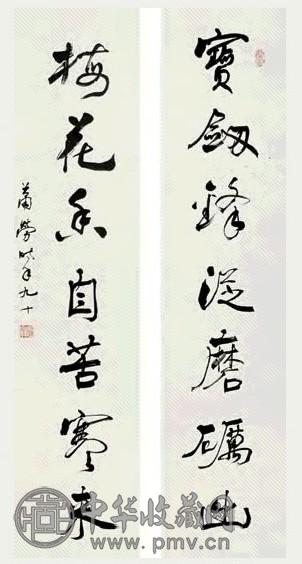 寶劔鋒從磨礪出
梅花香自苦寒來
蕭勞時年九十
中华收藏网
www.pmv.cn